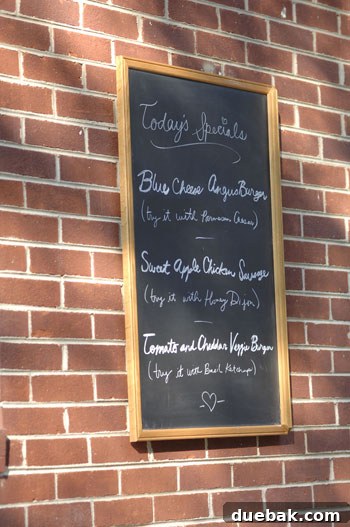 Today's Specials
Blue Cheese Angus Burger
(try it with Parmesan Cream)
Sweet Apple Chicken Sausage
(try it with Honey Dijon)
Tomato and Cheddar Veggie Burger
(try it with Basil Ketchup)
duebak.com